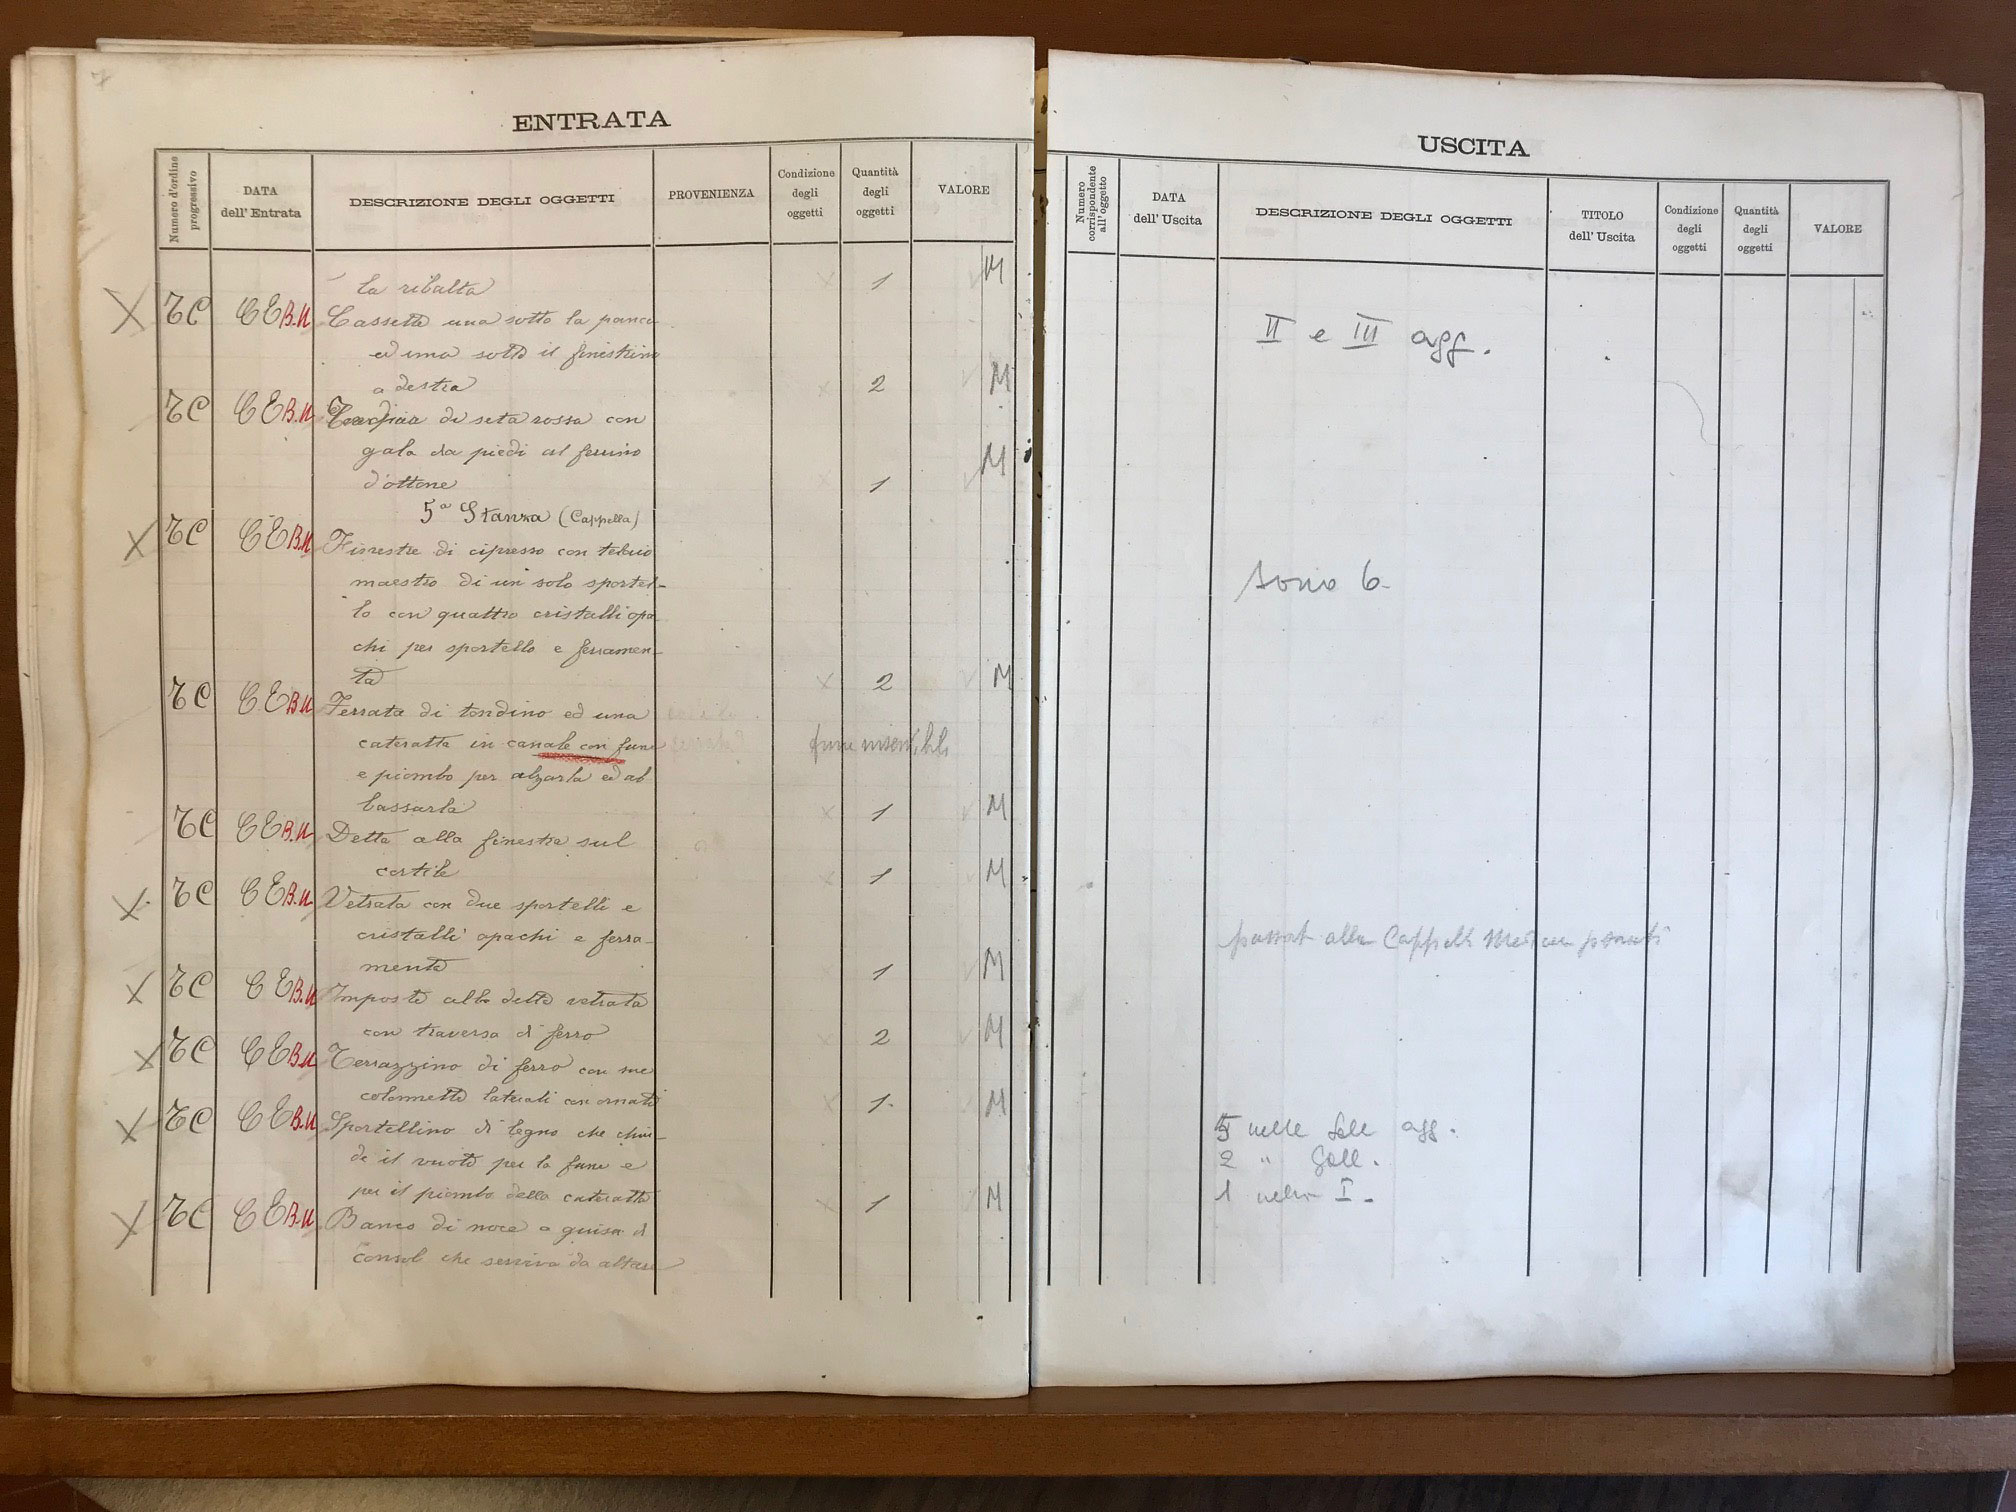 7
ENTRATA
Numero d'ordine progressivo
DATA dell' Entrata
DESCRIZIONE DEGLI OGGETTI
PROVENIENZA
Condizione degli oggetti
Quantità degli oggetti
VALORE
la ribalta 1 M
X TC CE B.U Cassette una sotto la panca
ed una sotto il finestrino
a destra 2 M
TC CE B.U di seta rossa con
gala da piedi al ferrino M
d'ottone 1
5a Stanza (Cappella)
X TC CE B.U Finestre di cipresso con telaio
maestro di un solo sportel-
lo con quattro cristalli opa-
chi per sportello e ferramen-
ta 2 M
TC CE B.U Ferrata di tondino ed una
cateratta in canale con fune fune
e piombo per alzarla ed ab
bassarla 1 M
TC CE B.U Detta alla finestra sul
cortile 1 M
X TC CE B.U Vetrata con due sportelli e
cristalli opachi e ferra-
menta 1 M
X TC CE B.U Imposte alla detta vetrata
con traversa di ferro 2 M
X TC CE B.U Terrazzino di ferro con due
colonnette laterali con ornati 1 M
X TC CE B.U Sportellino di legno che chiu-
de il vuoto per la fune e
per il piombo della cateratta 1 M
X TC CE B.U Banco di noce a guisa di
consol che serviva da altare
USCITA
Numero corrispondente all' oggetto
DATA dell' Uscita
DESCRIZIONE DEGLI OGGETTI
TITOLO dell' Uscita
Condizione degli oggetti
Quantità degli oggetti
VALORE
II e III agg.
sono 6
alla
5 nelle Sale agg.
2 " Gall.
1 nella I